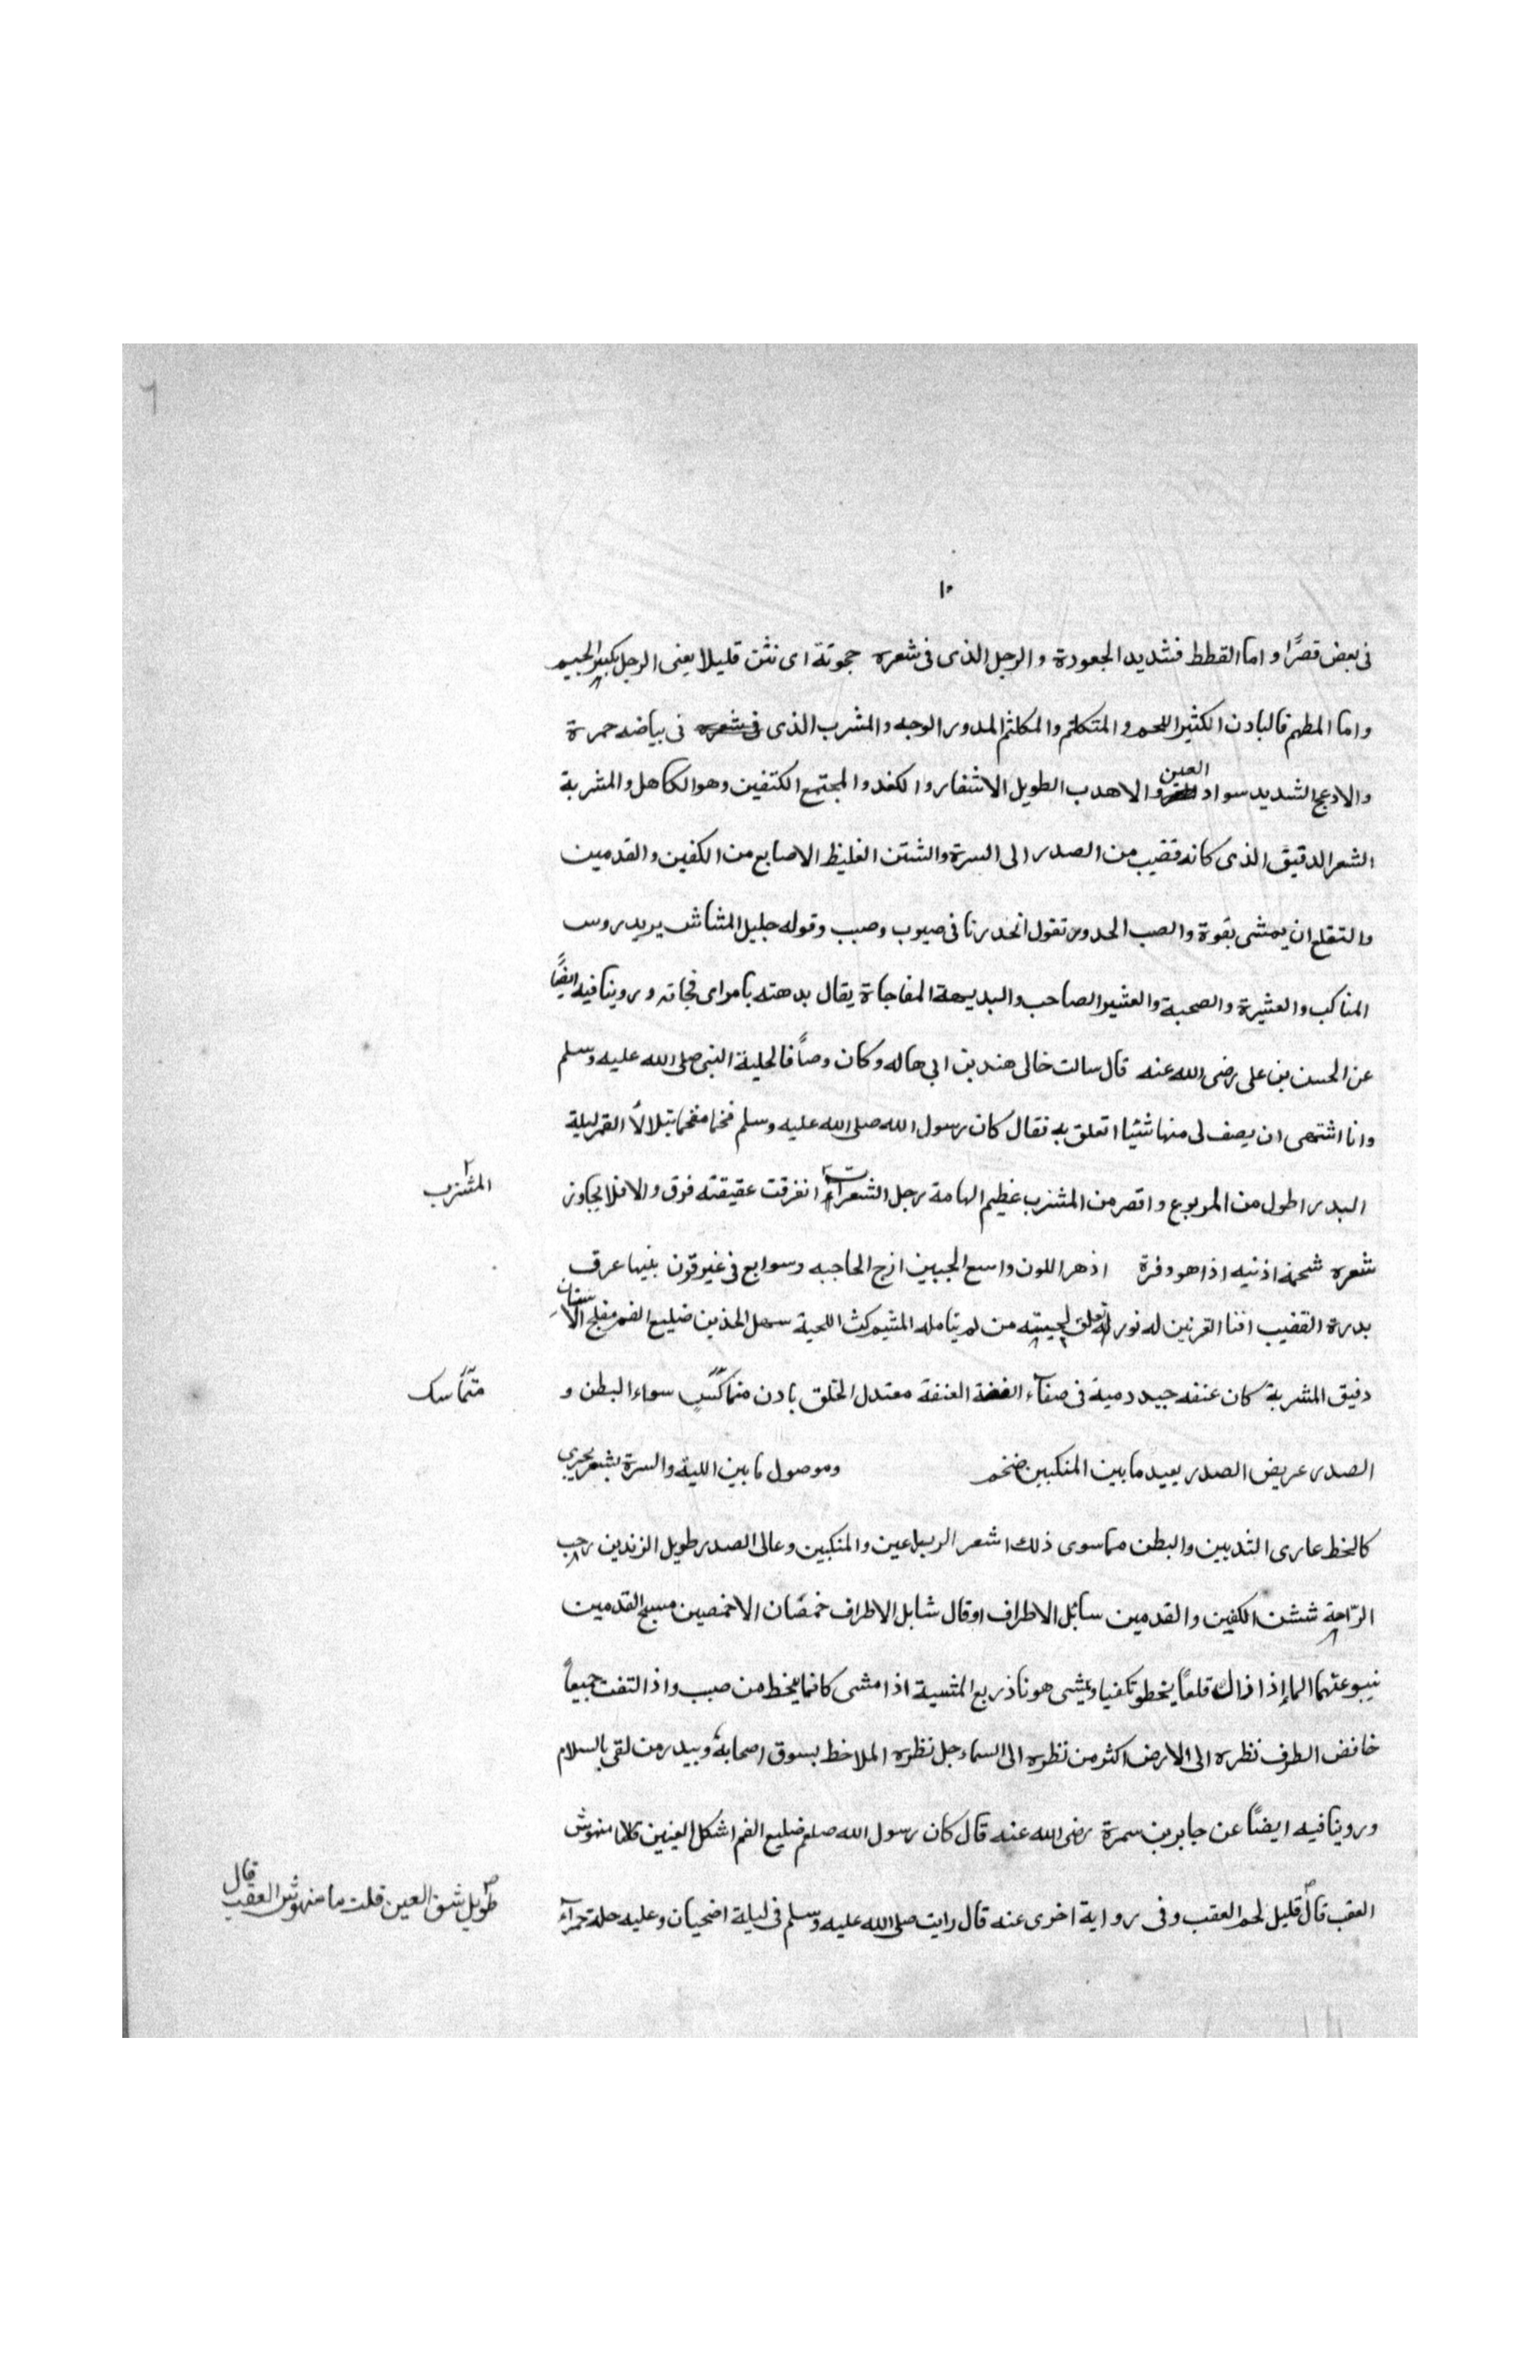 ٦
١٠
فى بعض قصرًا واما القطط فشديد الجعودة والرجل الذى فى شعره حجوتة اى تثن قليلا يعنى الرجل بكسر الجيم
واما المطهم فالبادن الكثير اللحم والمتكلثم والمكلثم المدور الوجه والمشرب الذى فى شعره فى بياضه حمرة
والادعج الشديد سواد العين والاهدب الطويل الاشفار والكفد والمجتمع الكتفين وهو الكاهل والمشربة
الشعر الدقيق الذى كانه قضيب من الصدر الى السرة والشثن الغليظ الاصابع من الكفين والقدمين
والتقلع ان يمشى بقوة والصب الحدور تقول انحدرنا فى صبوب وصبب وقوله جليل المشاش يريد روس
المناكب والعشيرة والصحبة والعشير الصاحب والبديهة المفاجاة يقال بدهته بامر اى فجاته وروينا فيه ايضًا
عن الحسن بن على رضى الله عنه قال سالت خالى هند بن ابى هاله وكان وصافا لحلية النبى صلى الله عليه وسلم
وانا اشتهى ان يصف لى منها شئيا اتعلق به فقال كان رسول الله صلى الله عليه وسلم فخما مفخما يتلالأ القمر ليلة
البدر اطول من المربوع واقصر من المشذب عظيم الهامة رجل الشعر ان انفرقت عقيقته فرق والا فلا يجاوز
المشذب
شعره شحمة اذنيه اذا هو وفرة ازهر اللون واسع الجبين ازج الحاجبه وسوابغ فى غير قرن بينها عرق
بدرة القضيب اقنا القرنين له نور له تعلق لحيته من لم يتامله الشيم كث اللحية سهل الخذين ضليع الفم مفلج الاسنان
دقيق المشربة كان عنقه جيد دمية فى صفآء الفضة العنقة معتدل الخلق بادن متماكسٍ سواء البطن و
متّماسك
الصدر عريض الصدر بعيد ما بين المنكبين ضخم وموصول ما بين اللبة والسرة بشعر يجرى
كالخط عارى الثديين والبطن مما سوى ذلك اشعر الربيلعين والمنكبين وعالى الصدر طويل الزندين رحب
الرّاحة ششن الكفين والقدمين سائل الاطراف او قال شابل الاطراف خمصان الاخمصين مسيح القدمين
ينبو عنهما الماء إذا زال قلعًا يخطو تكفيا ويمشى هونا ذريع المشية اذا مشى كانما يخط من صبب واذ التفت جميعاً
خافض الطرف نظره الى الارض اكثر من نظره الى السماء جل نظره الملاحظ بسوق اصحابهُ ويبدر من لقى بالسلام
وروينا فيه ايضًا عن جابر بن سمرة رضى الله عنه قال كان رسول الله صلعم ضليع الفم اشكل العينين منهوش
العقب قال قليل لحم العقب وفى رواية اخرى عنه قال رايت صلى الله عليه وسلم فى ليلة اضحيان وعليه حلة حمرآء
طويل شق العين قلت ما منهوش العقب قال